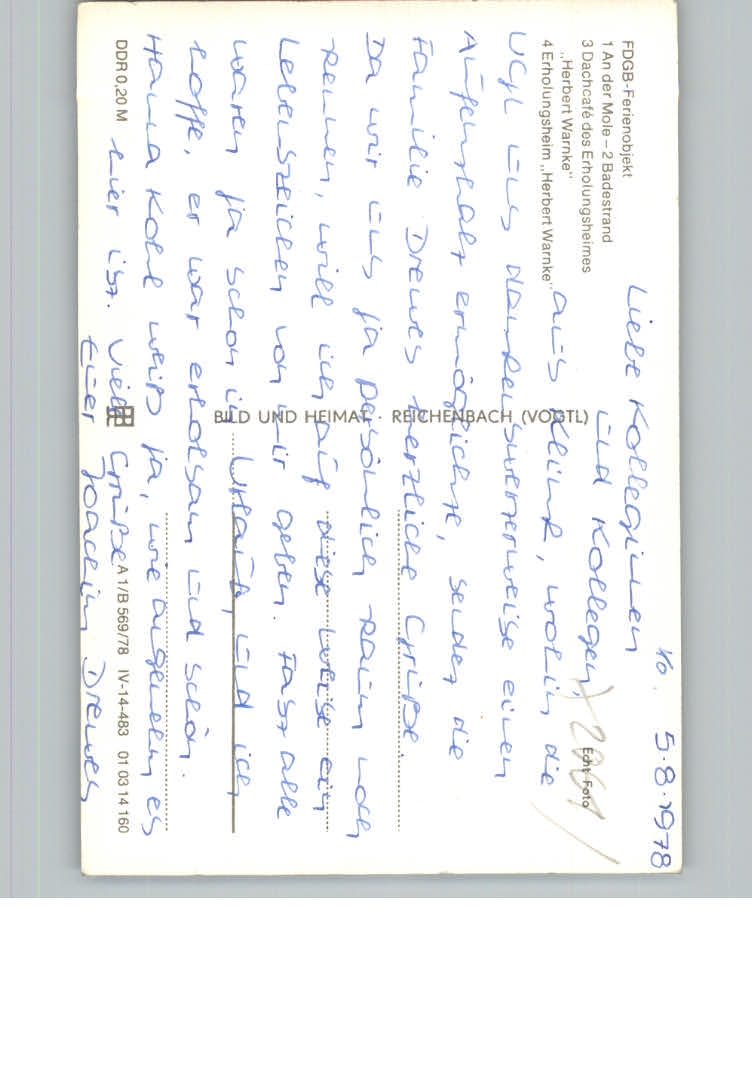 5.8.1978
FDGB-Ferienobjekt
1 An der Mole – 2 Badestrand
3 Dachcafé des Erholungsheimes
„Herbert Warnke“
4 Erholungsheim „Herbert Warnke“
Echt Foto
Liebe Kolleginnen
und Kollegen,
aus Klink, wohin die
uns dankenswerterweise einen
Aufenthalt ermöglichte, sendet die
Familie Drewes herzliche Grüße.
Da wir uns ja persönlich kaum noch
kennen, will ich auf diese Weise ein
Lebenszeichen von mir geben. Fast alle
waren ja schon in Urlaub, und ich
hoffe, er war erholsam und schön.
Hanna Kohl weiß ja, wie angenehm es
hier ist. Viele Grüße
Euer Joachim Drewes
BILD UND HEIMAT · REICHENBACH (VOGTL)
DDR 0,20 M
A 1/B 569/78 IV-14-483 01 03 14 160